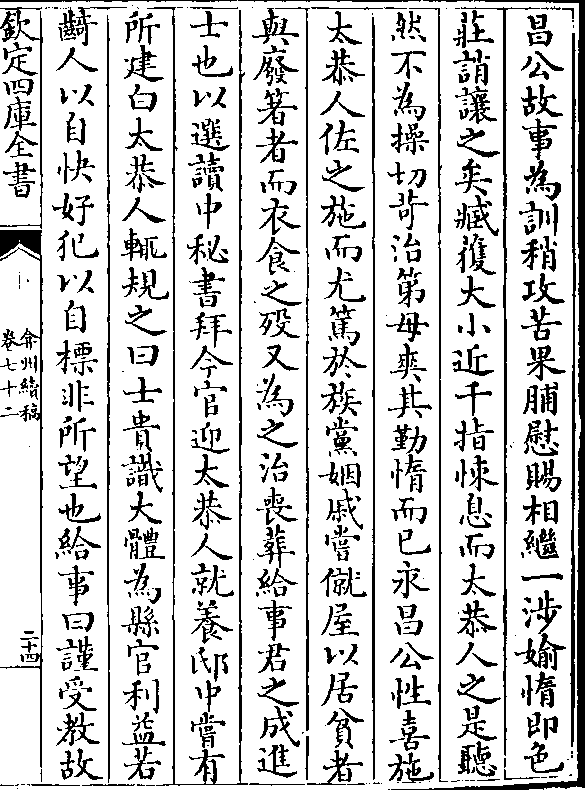 昌公故事為訓稍攻苦果脯慰賜相繼一涉婾惰即色
莊誚讓之矣臧獲大小近千指悚息而太恭人之是聽
然不為操切苛治第毋爽其勤惰而已永昌公性喜施
太恭人佐之施而尤篤於族黨姻戚嘗僦屋以居貧者
與廢箸者而衣食之歿又為之治喪葬給事君之成進
士也以選讀中秘書拜今官迎太恭人就養邸中嘗有
所建白太恭人輒規之曰士貴識大體為縣官利益若
齮人以自快好犯以自標非所望也給事曰謹受教故
欽定四庫全書
弇州續稿
卷七十二
二十四